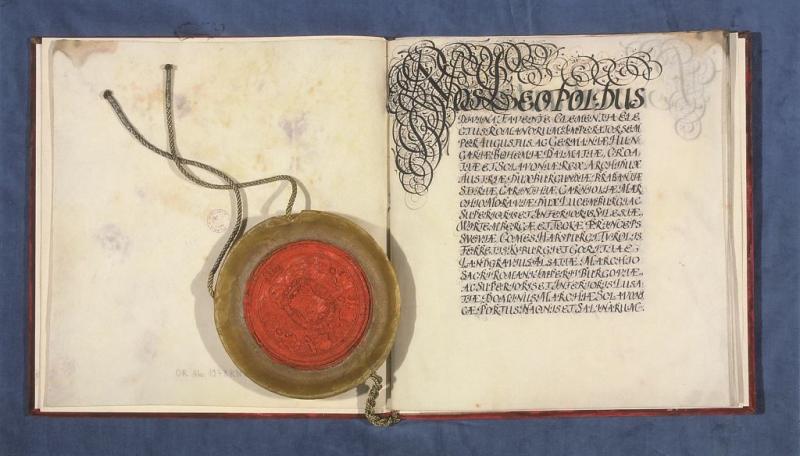 NOS LEOPOLDUS
DIVINA FAVENTE CLEMENTIA ELE
CTUS ROMANORUM IMPERATOR SEM
PER AUGUSTUS AC GERMANIÆ HUN
GARIÆ BOHEMIÆ DALMATIÆ, CROA
TIÆ ET SCLAVONIÆ REX ARCHIDUX
AUSTRIÆ DUX BURGUNDIÆ BRABANTIÆ
STIRIÆ CARINTHIÆ CARNIOLIÆ MAR
CHIO MORAVIÆ DUX LUCEMBURGI AC
SUPERIORIS ET INFERIORIS SILESIÆ
WIRTEMBERGÆ ET TECKÆ PRINCEPS
SVEVIÆ COMES HABSPURGI TYROLIS
FERRETIS KYBURGI ET GORITIÆ
LANDGRAVIUS ALSATIÆ MARCHIO
SACRI ROMANI IMPERII BURGOVIÆ
AC SUPERIORIS ET INFERIORIS LUSA
TIÆ DOMINUS MARCHIÆ SCLAVONI
CÆ PORTUS NAONIS ET SALINARUM